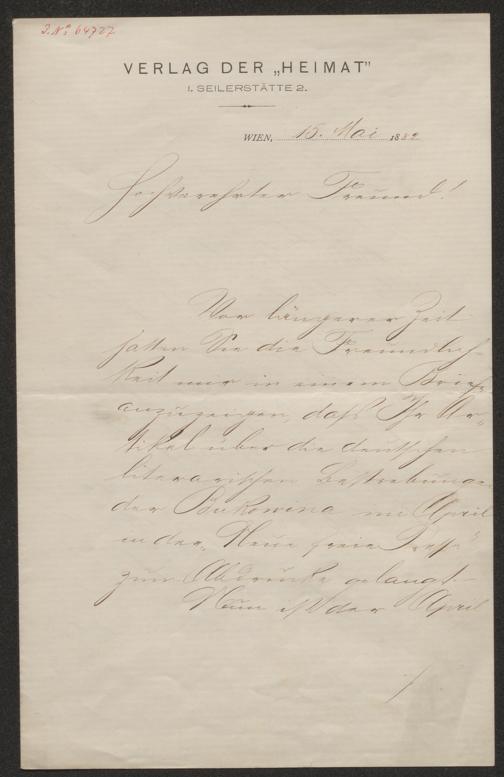 J. No 64727
VERLAG DER „HEIMAT"
I. SEILERSTÄTTE 2.
WIEN, 15. Mai 1882
Hochverehrter Freund!
Vor längerer Zeit
hatten Sie die Freundlich-
keit mir in einem Briefe
anzuzeigen, daß Ihr Ar-
tikel über die deutschen
literarischen Bestrebungen
der Bukowina im April
in der „Neue freie Presse"
zum Abdrucke gelangt.-
Nun ist der April